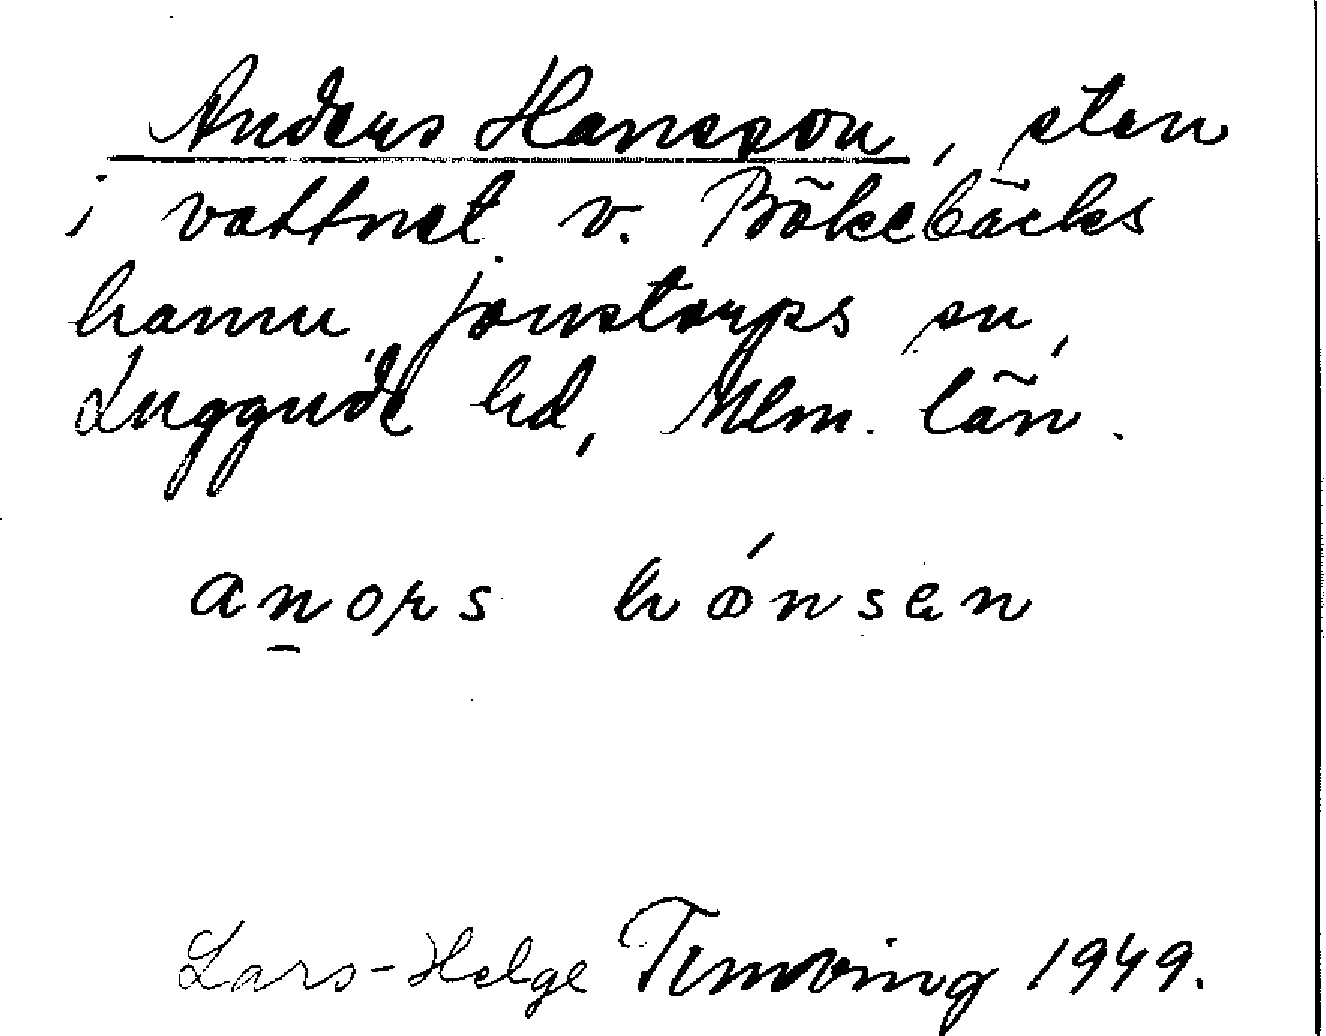 Anders Hansson, sten
i vattnet v. Bökebäcks
hamn Jonstorps sn,
Luggude hd, Mlm. län.
hǿnsen
Lars-Helge 1949.